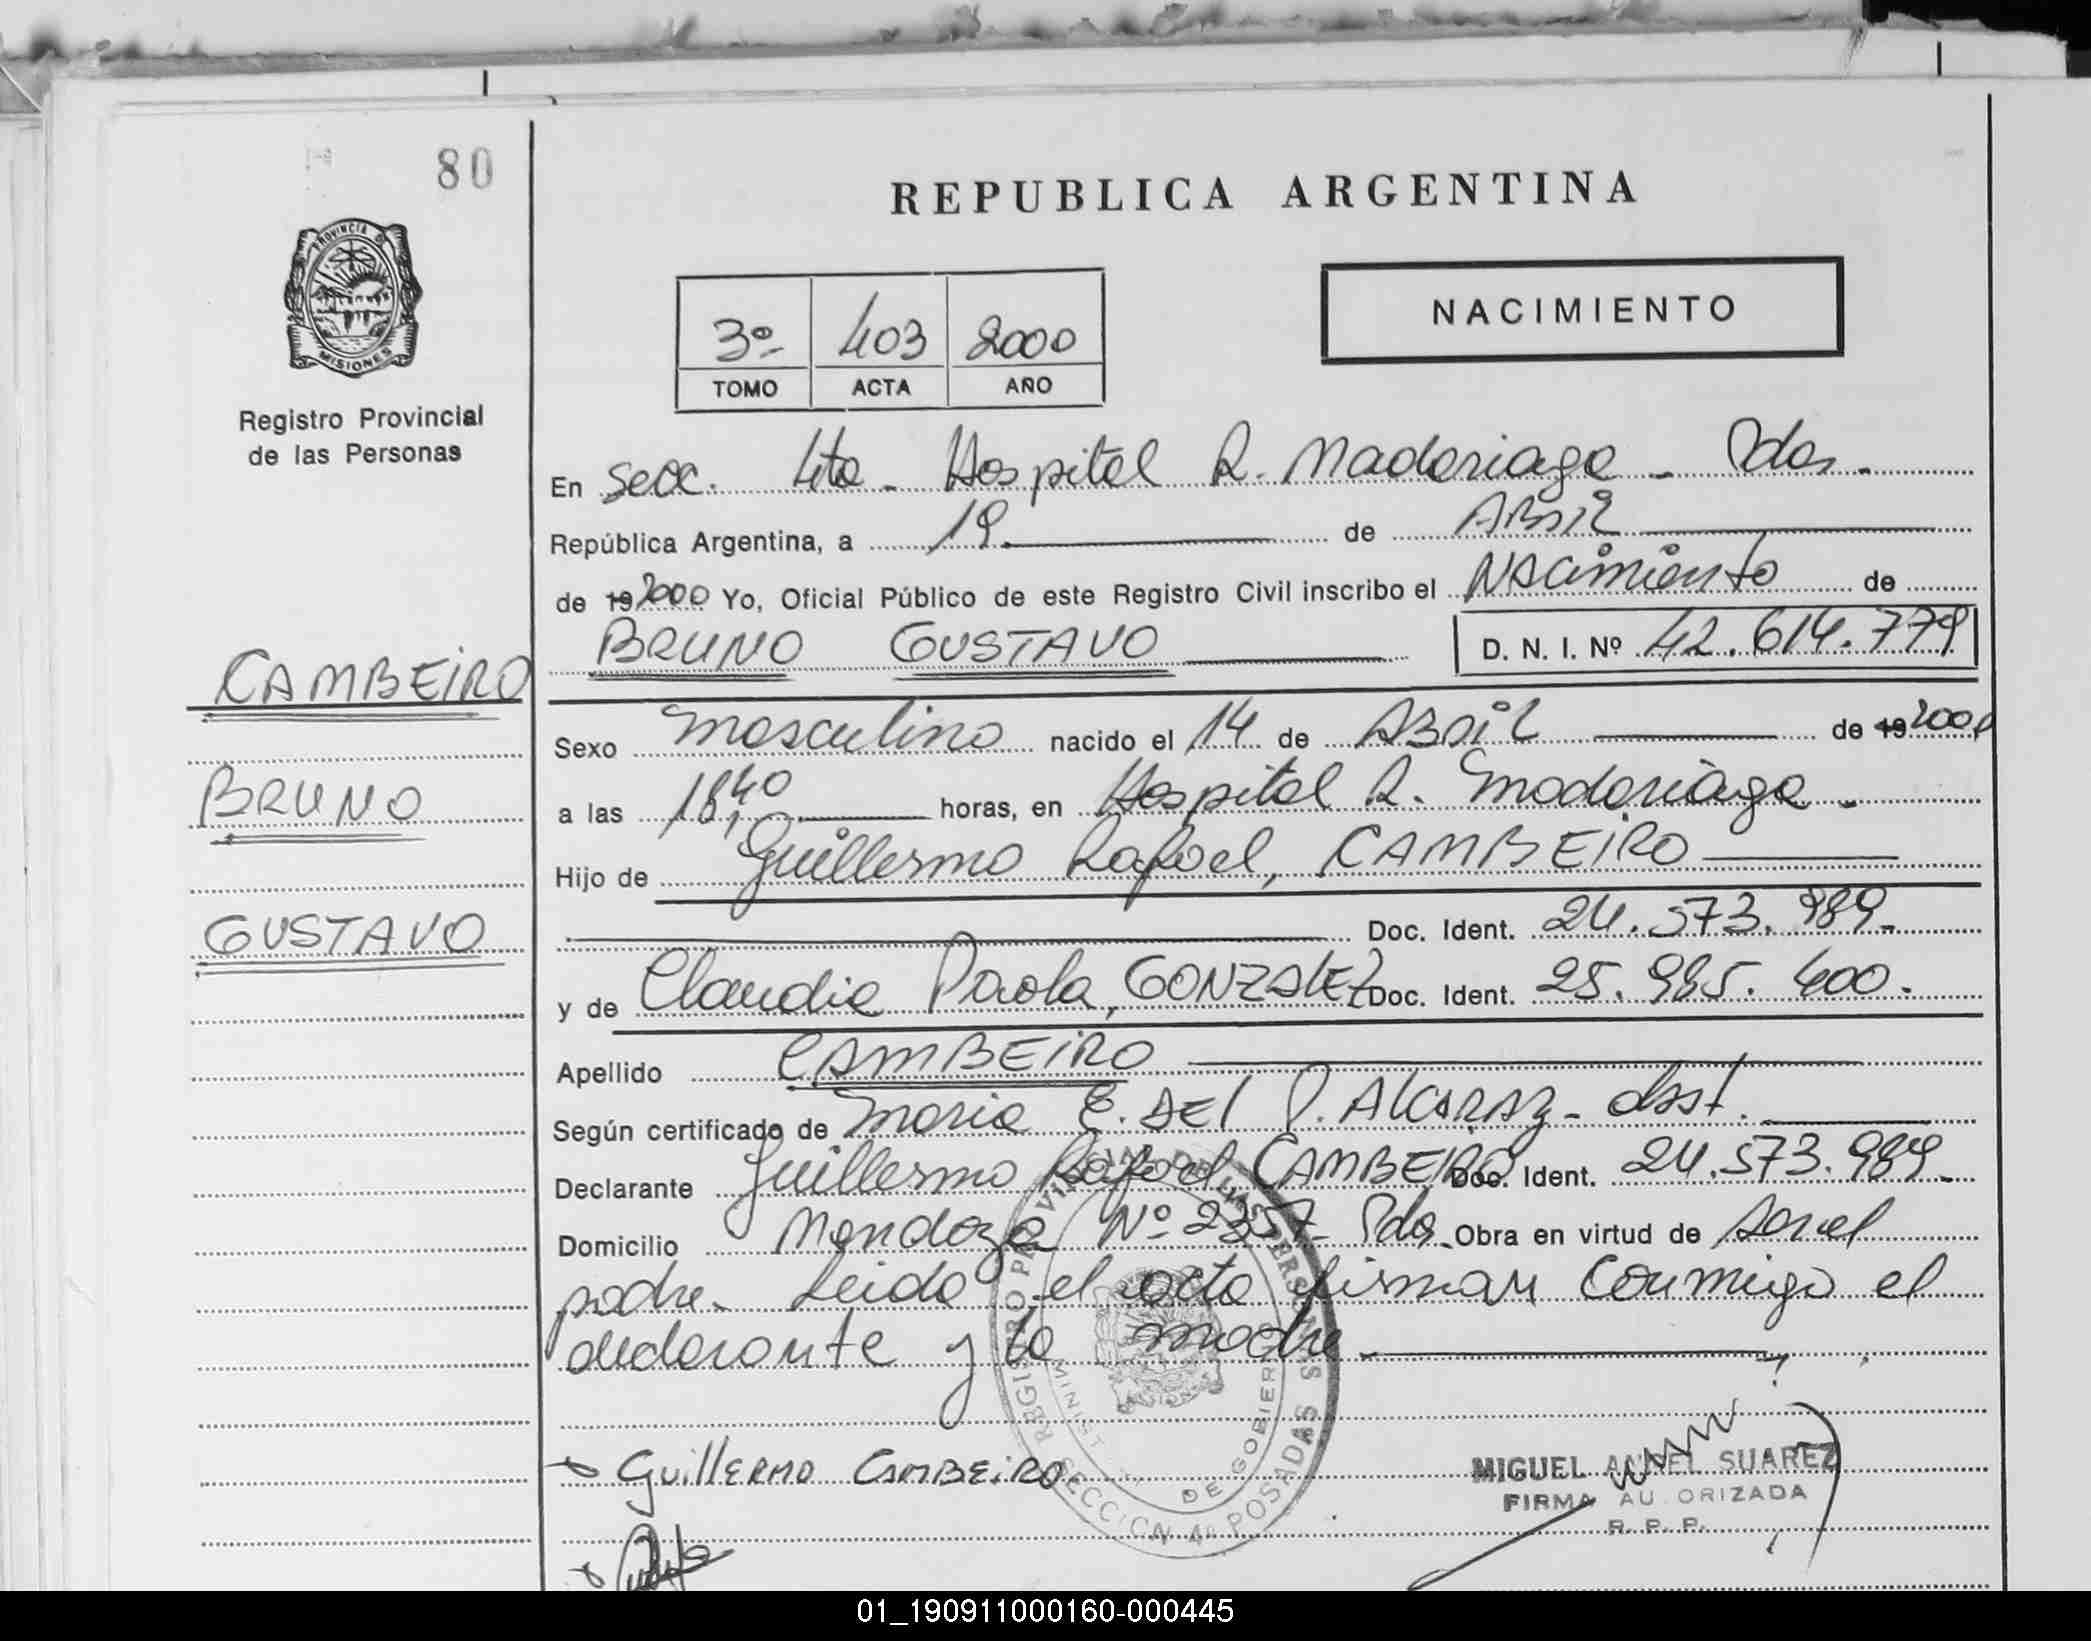 80
REPUBLICA ARGENTINA
PROVINCIA DE
MISIONES
Registro Provincial
de las Personas
NACIMIENTO
3º 403 2000
TOMO ACTA AÑO
En Secc. 4ta - Hospital R. Madariaga - Pdas.
República Argentina, a 19 de Abril
de 19 2000 Yo, Oficial Público de este Registro Civil inscribo el Nacimiento de
BRUNO GUSTAVO D. N. I. Nº 42.614.779
CAMBEIRO
Sexo masculino nacido el 14 de Abril de 19 2000
BRUNO
a las 18,40 horas, en Hospital R. Madariaga -
Hijo de Guillermo Rafael, CAMBEIRO
GUSTAVO
Doc. Ident. 24.573.989.
y de Claudia Paola, GONZALEZ Doc. Ident. 25.985.400.
Apellido CAMBEIRO
Según certificado de Maria E. DEL P. ALCARAZ - obst.
Declarante Guillermo Rafael, CAMBEIRO Doc. Ident. 24.573.989 -
Domicilio Mendoza Nº 2357 - Pdas. Obra en virtud de ser el
padre. Leida el acta firman conmigo el
declarante y la madre
Guillermo CAMBEIRO
REGISTRO PROVINCIAL DE LAS PERSONAS
DE GOBIER
SECCION 4º POSADAS
MIGUEL ANGEL SUAREZ
FIRMA AUTORIZADA
R. P. P.
01_190911000160-000445